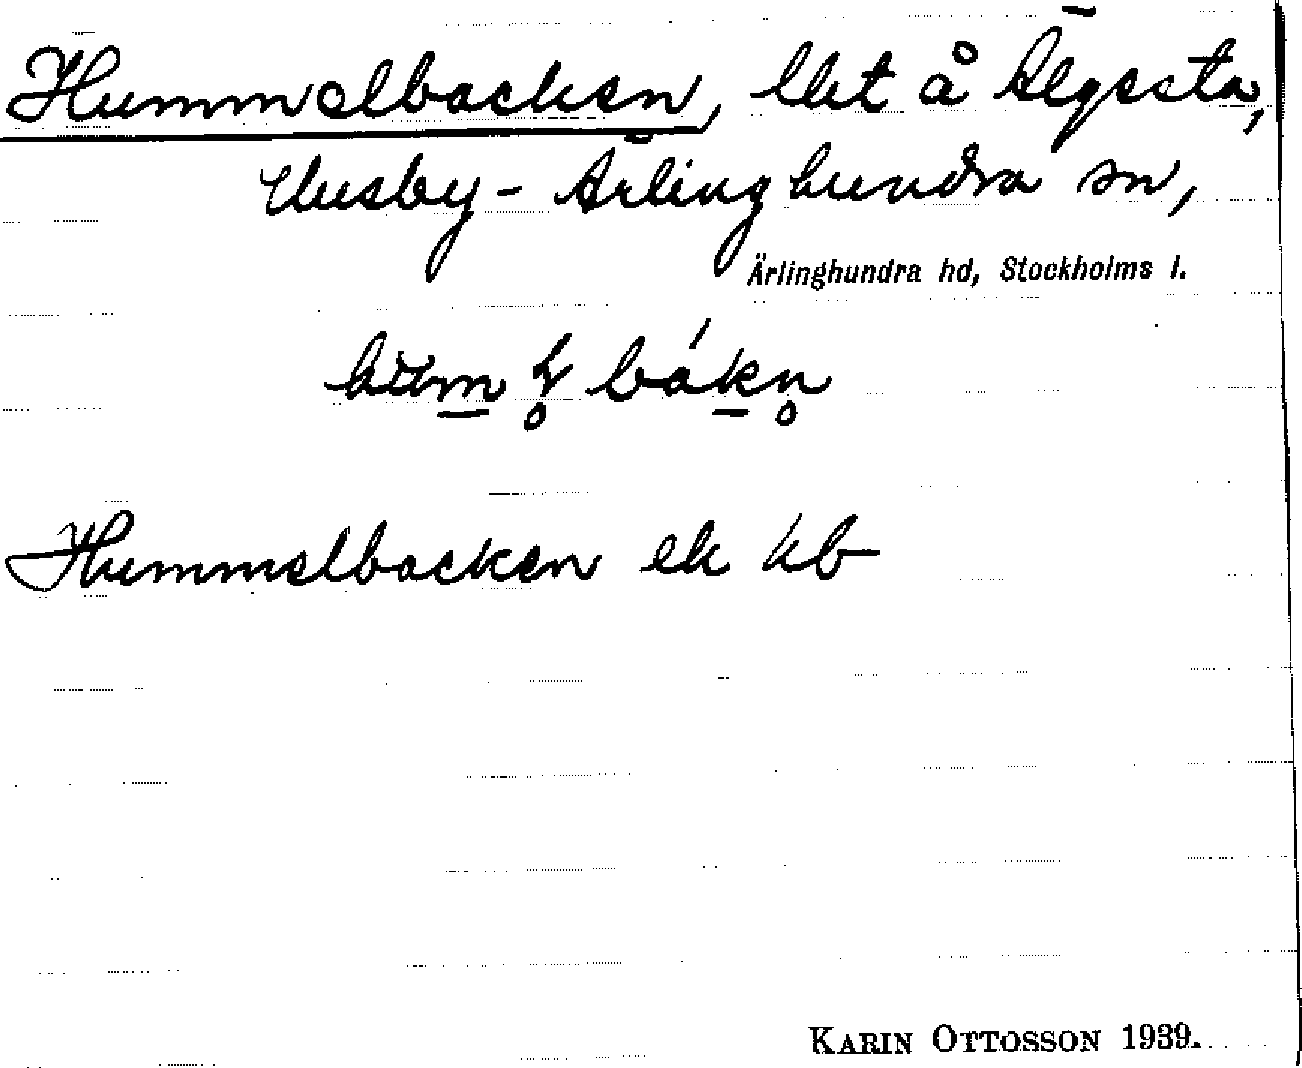 Hummelbacken, lht å Älgesta,
Husby-Ärlinghundra sn,
Ärlinghundra hd, Stockholms l.
Hummelbacken ek kb
KARIN OTTOSSON 1939.